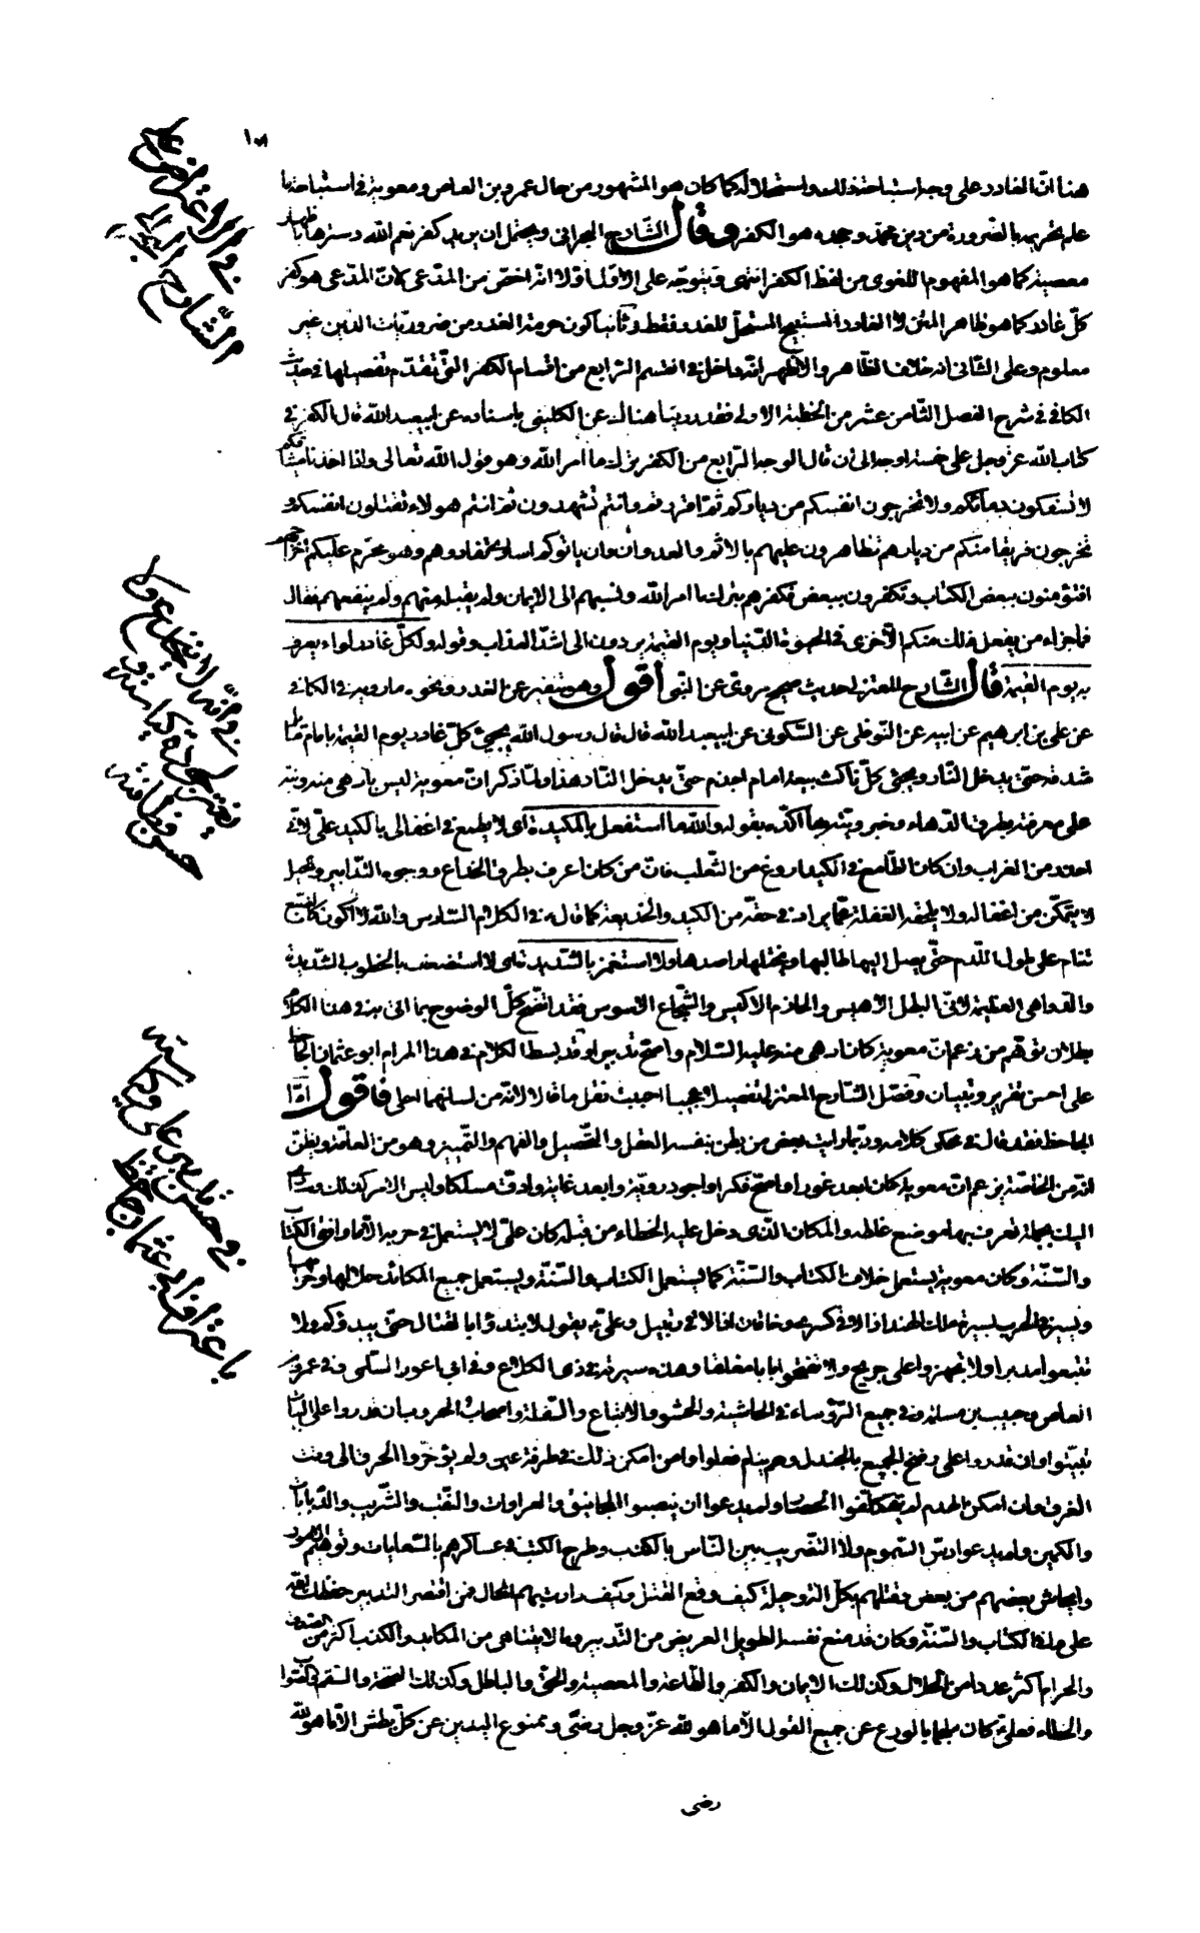 هنا انّ الغادر على وجه استباحة ذلك واستحلاله كما كان هو المشهور من حال عمرو بن العاص ومعوية في استباحة ما
علم تحريمه بالضرورة من دين محمّد وجحده هو الكفر وقال الشّارح البحراني ويحتمل ان يريد كفر نعم الله وسترها باظهار
معصيته كما هو المفهوم اللغوى من لفظ الكفر انتهى ويتوجّه على الاوّل اوّلا انّه اخصّ من المدّعى لانّ المدّعى هو كفر
كلّ غادر كما هو ظاهر المتن لا الغادر المستبيح المستحلّ للغدر فقط وثانيا كون حرمة الغدر من ضروريّات الدّين غير
معلوم وعلى الثّانى انه خلاف الظّاهر والاظهر انّه داخل في القسم الرّابع من اقسام الكفر الّتى تقدّم تفصيلها في حديث
الكافى في شرح الفصل الثّامن عشر من الخطبة الاولى فقد روينا هناك عن الكلينى باسناده عن ابيعبد الله قال الكفر في
كتاب الله عزّ وجل على خمسة اوجه الى ان قال الوجه الرّابع من الكفر ترك ما امر الله وهو قول الله تعالى واذا اخذنا ميثاقكم
لا تسفكون دمائكم ولا تخرجون انفسكم من دياركم ثمّ اقررتم وانتم تشهدون ثمّ انتم هؤلاء تقتلون انفسكم و
تخرجون فريقا منكم من ديارهم تظاهرون عليهم بالاثم والعدوان وان ياتوكم اسارى تفادوهم وهو محرّم عليكم اخراجهم
افتؤمنون ببعض الكتاب وتكفرون ببعض فكفرهم بترك ما امر الله ونسبهم الى الايمان ولم يقبله منهم ولم ينفعهم فقال
فما جزاء من يفعل ذلك منكم الّا خزى في الحيوة الدّنيا ويوم القيمة يردون الى اشدّ العذاب وقوله ولكلّ غادر لواء يعرف
به يوم القيمة قال الشّارح المعتزلى حديث صحيح مروىّ عن النّبى اقول وهو تنفير عن الغدر ونحوه ما رويه في الكافى
عن على بن ابرهيم عن ابيه عن النّوفلى عن السّكونى عن ابيعبد الله قال قال رسول الله يجيئ كلّ غادر يوم القيمة بامام مائل
شدقه حتّى يدخل النّار ويجئ كلّ ناكث بيعة امام اجذم حتّى يدخل النّار هذا ولمّا ذكر انّ معوية ليس بادهى منه ونبّه
على معرفته بطرق الدّهاء وخبرويّته بها اكّده بقوله والله ما استغفل بالمكيدة اى لا يطمع في اغفالى بالكيد علىّ لانّى
احذر من الغراب وان كان الطّامع في الكيد اروغ من الثّعلب فانّ من كان اعرف بطرق الخداع ووجوه التّدابير والحيل
لا يتمكّن من اغفاله ولا يلحقه الغفلة عمّا يراد في حقّه من الكيد والخديعة كما قاله في الكلام السّادس والله لا اكون كالضّبع
تنام على طول اللّدم حتّى يصل اليها طالبها ويختلها راصدها ولا استغمز بالشّديدة اى لا استضعف بالخطوب الشّديدة
والدّواهى العظيمة لانّى البطل الاهيس والحازم الاكيس والشّجاع الاسوس فقد اتّضح كلّ الوضوح بما اتى به في هذا الكلام
بطلان توهّم من زعم انّ معوية كان ادهى منه عليه السّلام واصحّ تدبيرا وقد بسط الكلام في هذا المرام ابو عثمان الجاحظ
على احسن تقرير وتبيان وفصّل الشّارح المعتزلى تفصيلا عجيبا احببت نقل ما قالا لانّه من لسانهما احلى فاقول امّا
الجاحظ فقد قال في محكى كلامه وربّما رايت بعض من يظن بنفسه العقل والتّحصيل والفهم والتّمييز وهو من العامّة ويظنّ
انّه من الخاصّة يزعم انّ معوية كان ابعد غورا واصحّ فكرا واجود رويّة وابعد غاية وادقّ مسلكا وليس الامر كذلك وسارمى
اليك بجملة تعرف بها موضع غلطه والمكان الّذى دخل عليه الخطاء من قبله كان علىّ لا يستعمل في حربه الّا ما وافق الكتاب
والسّنّة وكان معوية يستعمل خلاف الكتاب والسّنّة كما يستعمل الكتاب والسّنّة ويستعمل جميع المكائد حلالها وحرامها
ويسير في الحرب بسيرة ملك الهند اذا لاقى كسرى وخاقان اذا لاقى رتبيل وعلىّ يقول لا تبدؤا بالقتال حتّى يبدؤكم ولا
تتبعوا مدبرا ولا تجهزوا على جريح ولا تفتحوا بابا مغلقا وهذه سيرته في ذى الكلاع وفي ابى اعور السّلمى وفي عمرو بن
العاص وحبيب بن مسلمة وفي جميع الرّؤساء كما في الحاشية والحشو والاتباع والسّفلة واصحاب الحروب ان قدروا على البيات
بيّتوا وان قدروا على رضخ الجميع بالجندل وهم نيام فعلوا وان امكن ذلك في طرفة عين ولم يؤخّروا الحرق الى وقت
الغرق وان امكن الهدم لم يتكلّفوا الحصار ولم يدعوا ان ينصبوا المجانيق والعرادات والنّقب والتّسريب والدّبابات
والكمين ولم يدعوا دسّ السّموم ولا التّضريب بين النّاس بالكذب وطرح الكتب في عساكرهم بالسّعايات وتوهيم الامور
وايحاش بعضهم من بعض وقتلهم بكلّ آلة وحيلة كيف وقع القتل وكيف دارت بهم الحال فمن اقتصر من التدبير حفظك الله
على ما في الكتاب والسّنّة وكان قد منع نفسه الطويل العريض من التّدبير وما لا يتناهى من المكايد والكذب اكثر من الصّدق
والحرام اكثر عددا من الحلال وكذلك الايمان والكفر والطّاعة والمعصية والحقّ والباطل وكذلك الصّحة والسّقم والصّواب
والخطاء فعلىّ كان ملجما بالورع عن جميع القول الّا ما هو لله عزّ وجل رضى وممنوع اليدين عن كلّ بطش الّا ما هو لله
رضى
في الاعتراض على
الشّارح البحرانى